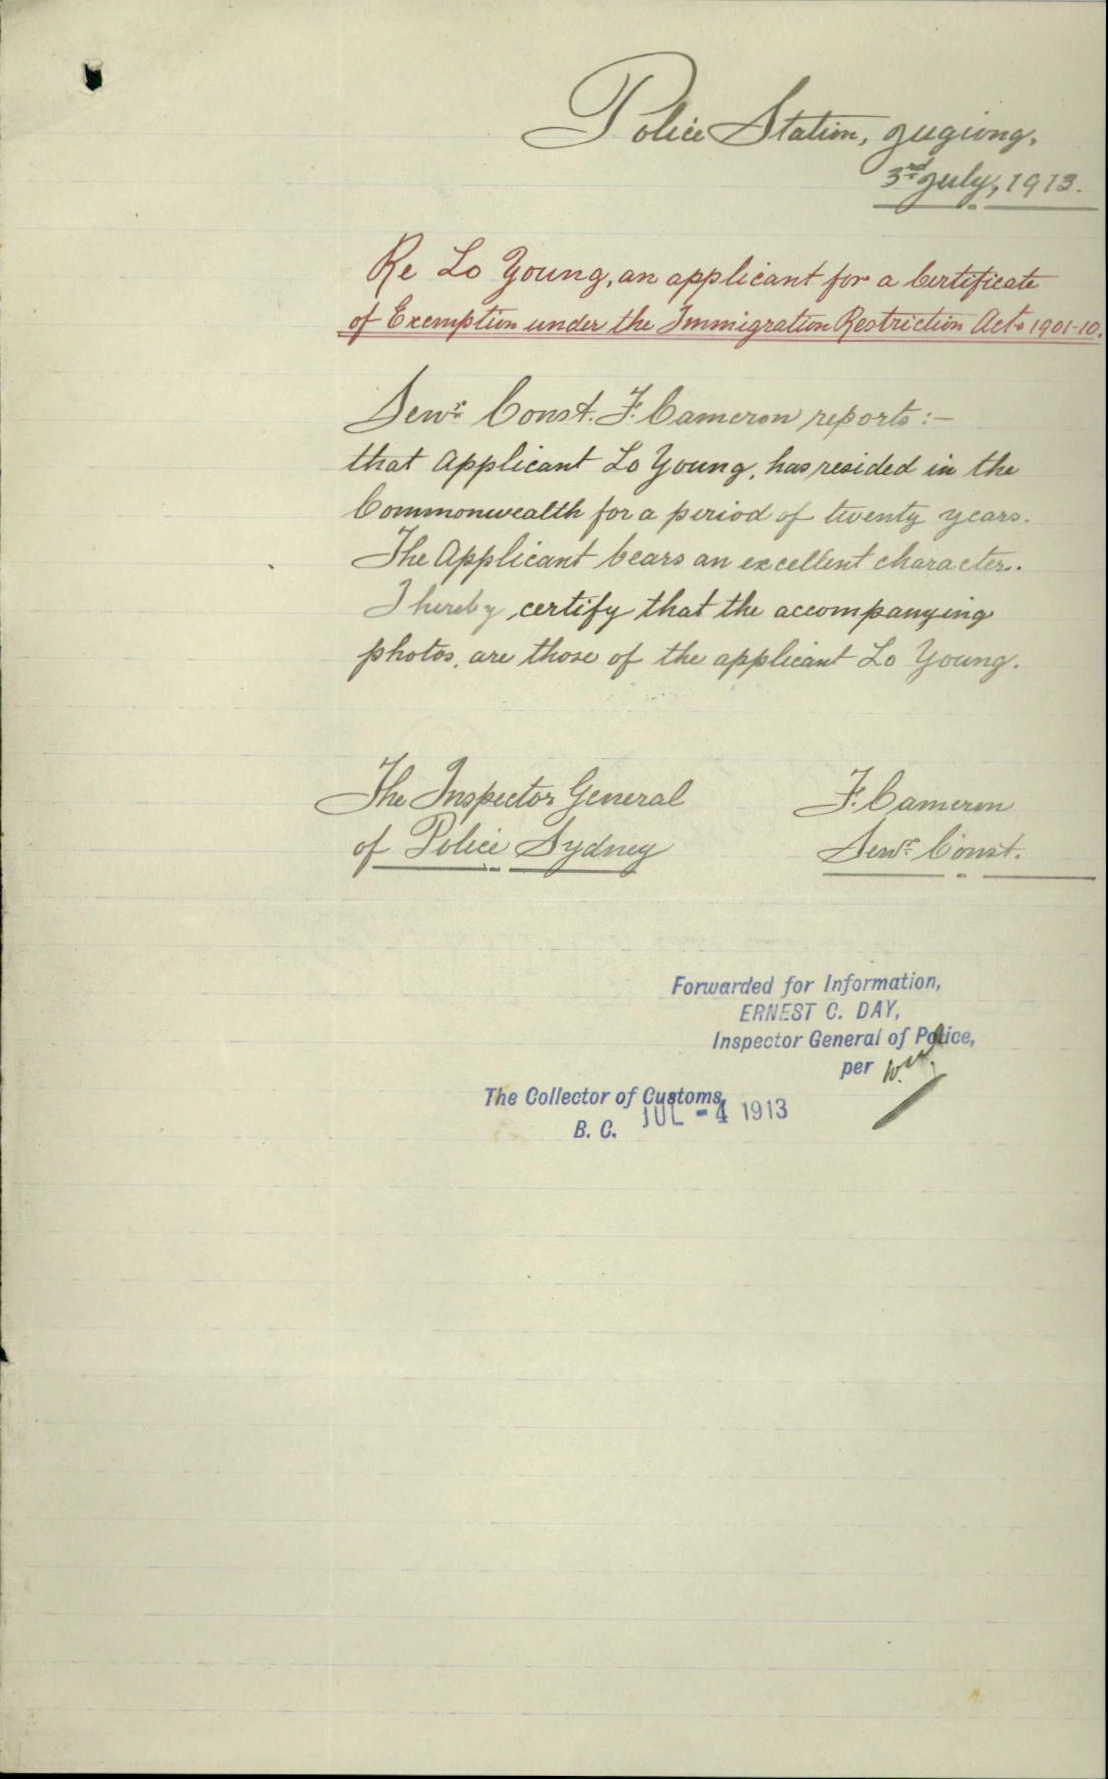 Police Station, Jugiong,
3rd July, 1913.
Re Lo Young, an applicant for a Certificate
of Exemption under the Immigration Restriction Acts 1901-10.
Senr. Const. F. Cameron reports:—
that applicant Lo Young, has resided in the
Commonwealth for a period of twenty years.
The Applicant bears an excellent character.
I hereby certify that the accompanying
photos, are those of the applicant Lo Young.
The Inspector General
of Police Sydney
F. Cameron
Senr. Const.
Forwarded for Information,
ERNEST C. DAY,
Inspector General of Police,
per
The Collector of Customs,
JUL - 4 1913
B. C.